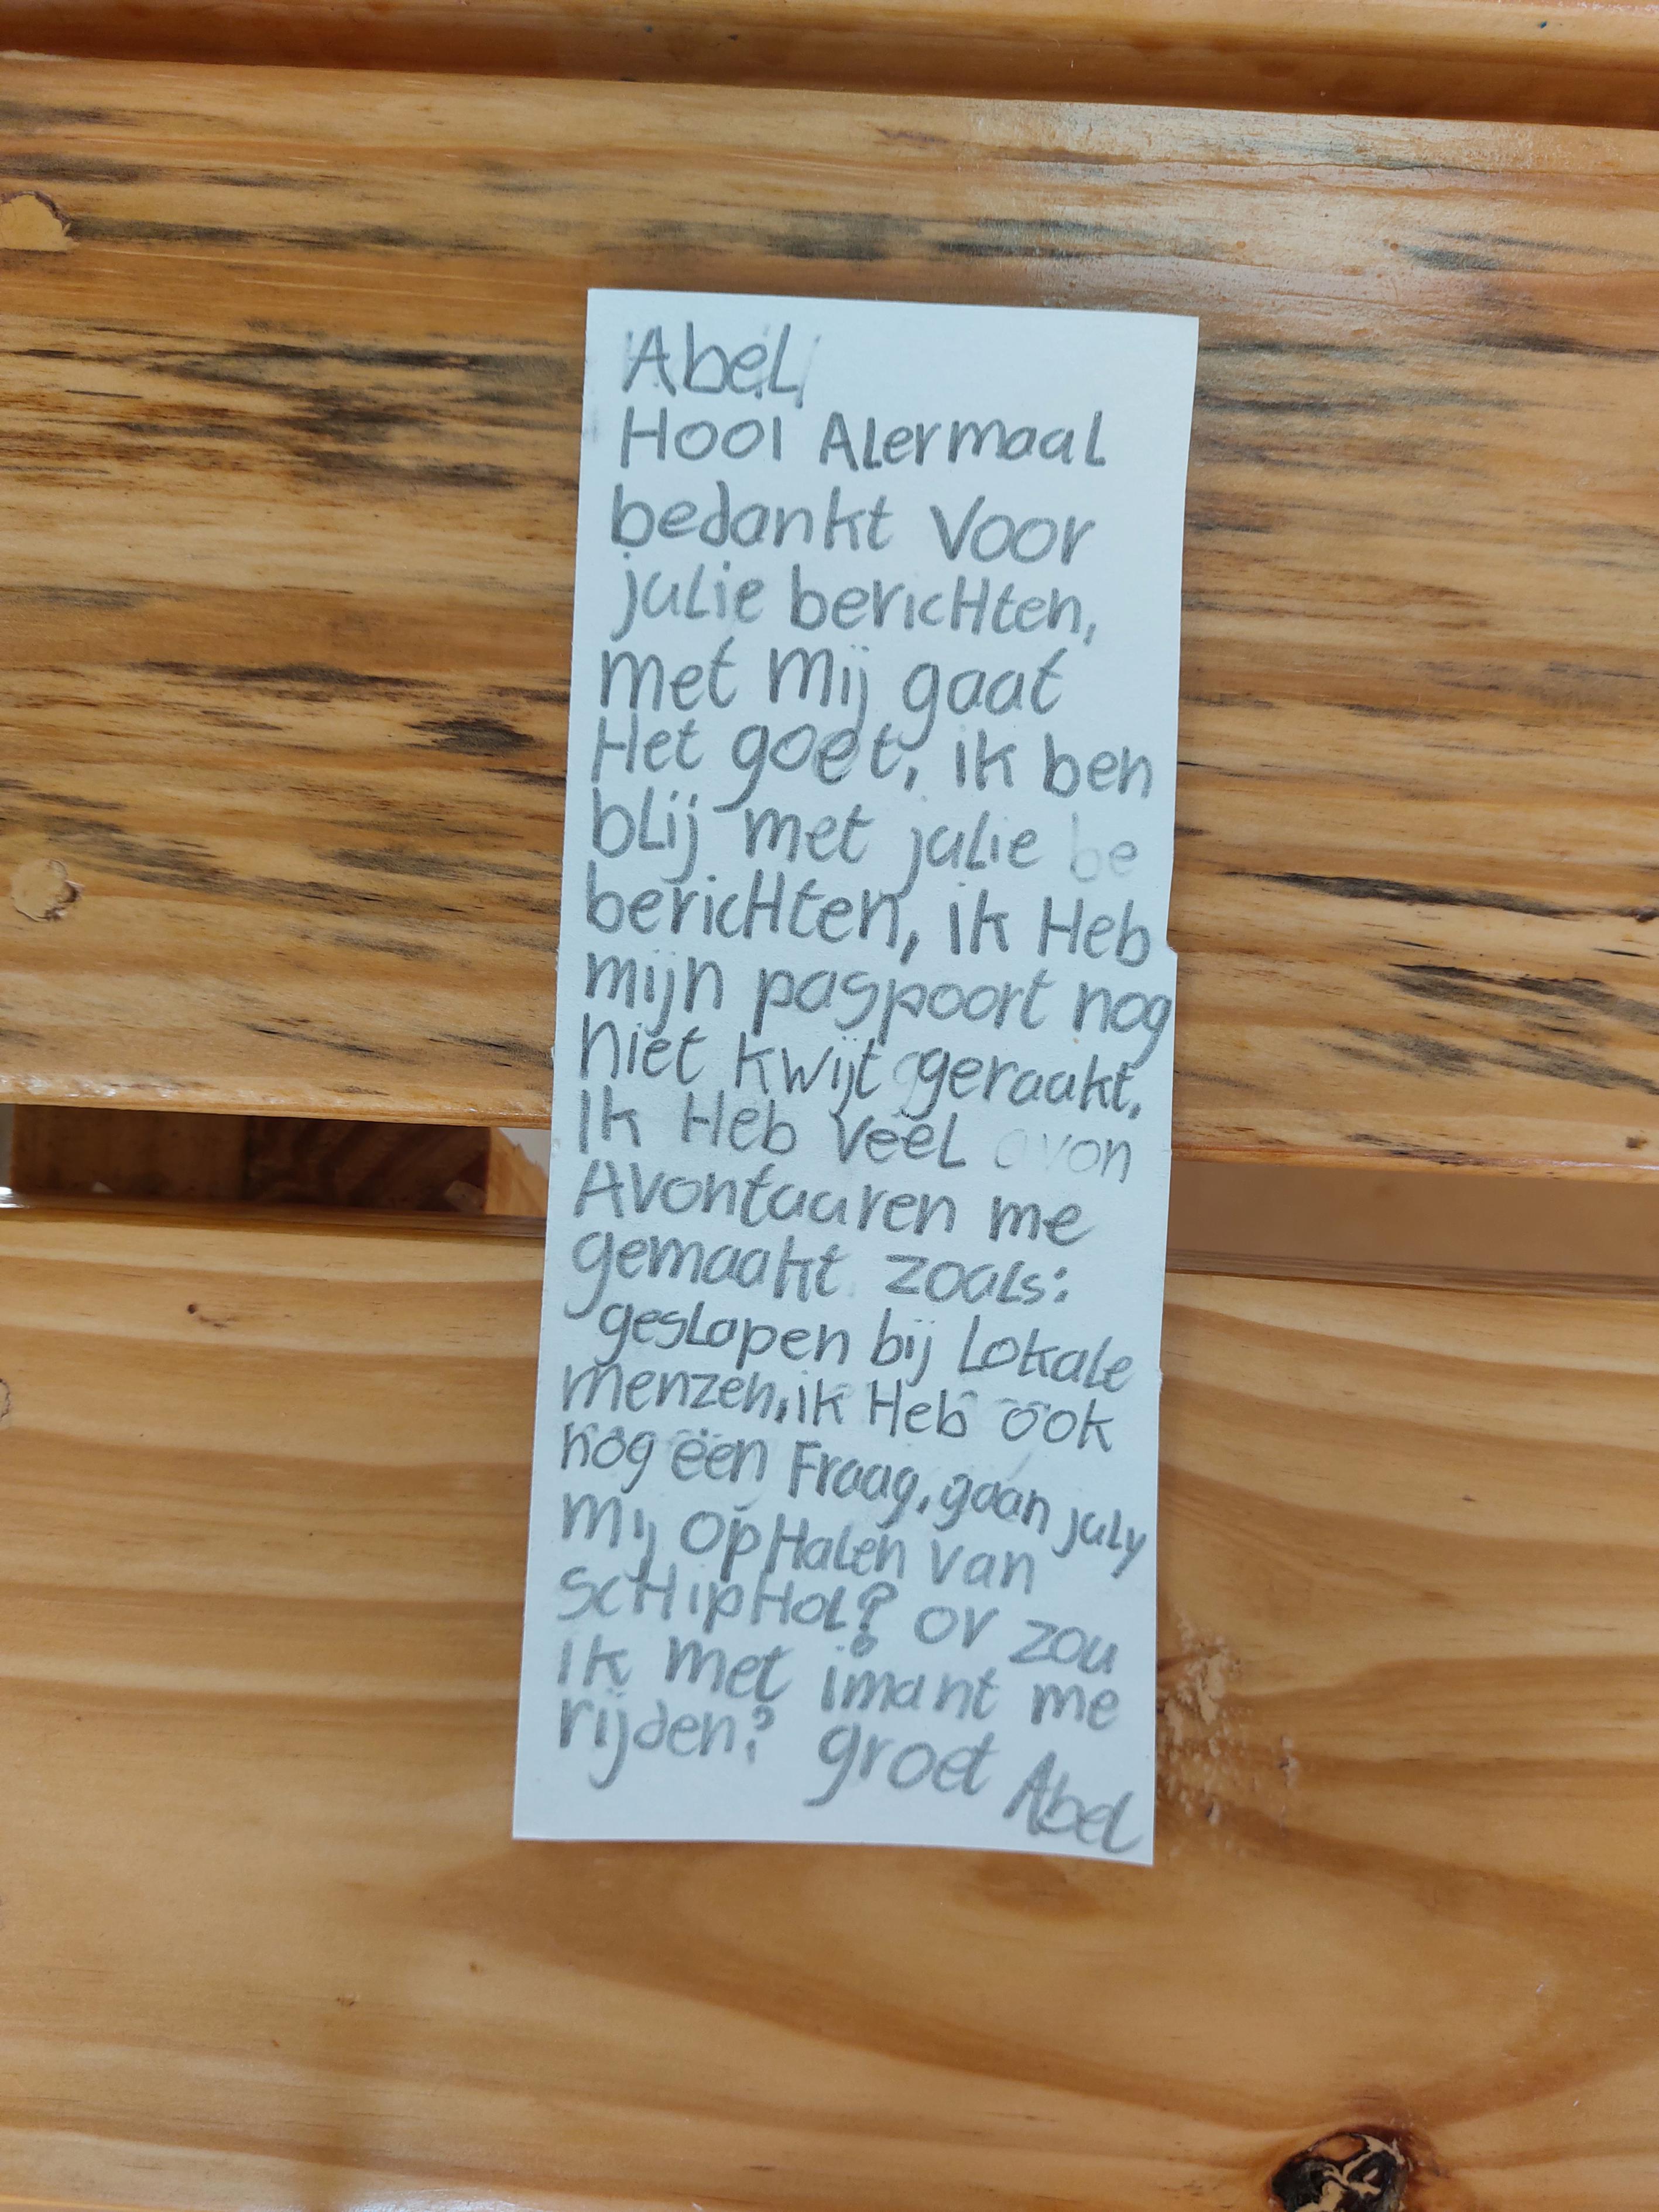 Abel
Hooi Alermaal
bedankt voor
julie berichten,
met mij gaat
Het goet, ik ben
blij met julie be
berichten, ik Heb
mijn paspoort nog
niet kwijt geraakt.
Ik Heb veel avon
Avontauren me
gemaakt zoals:
geslapen bij Lokale
menzen, ik Heb ook
nog één Fraag, gaan july
mij opHalen van
scHipHol? ov zou
ik met imant me
rijden? groet Abel